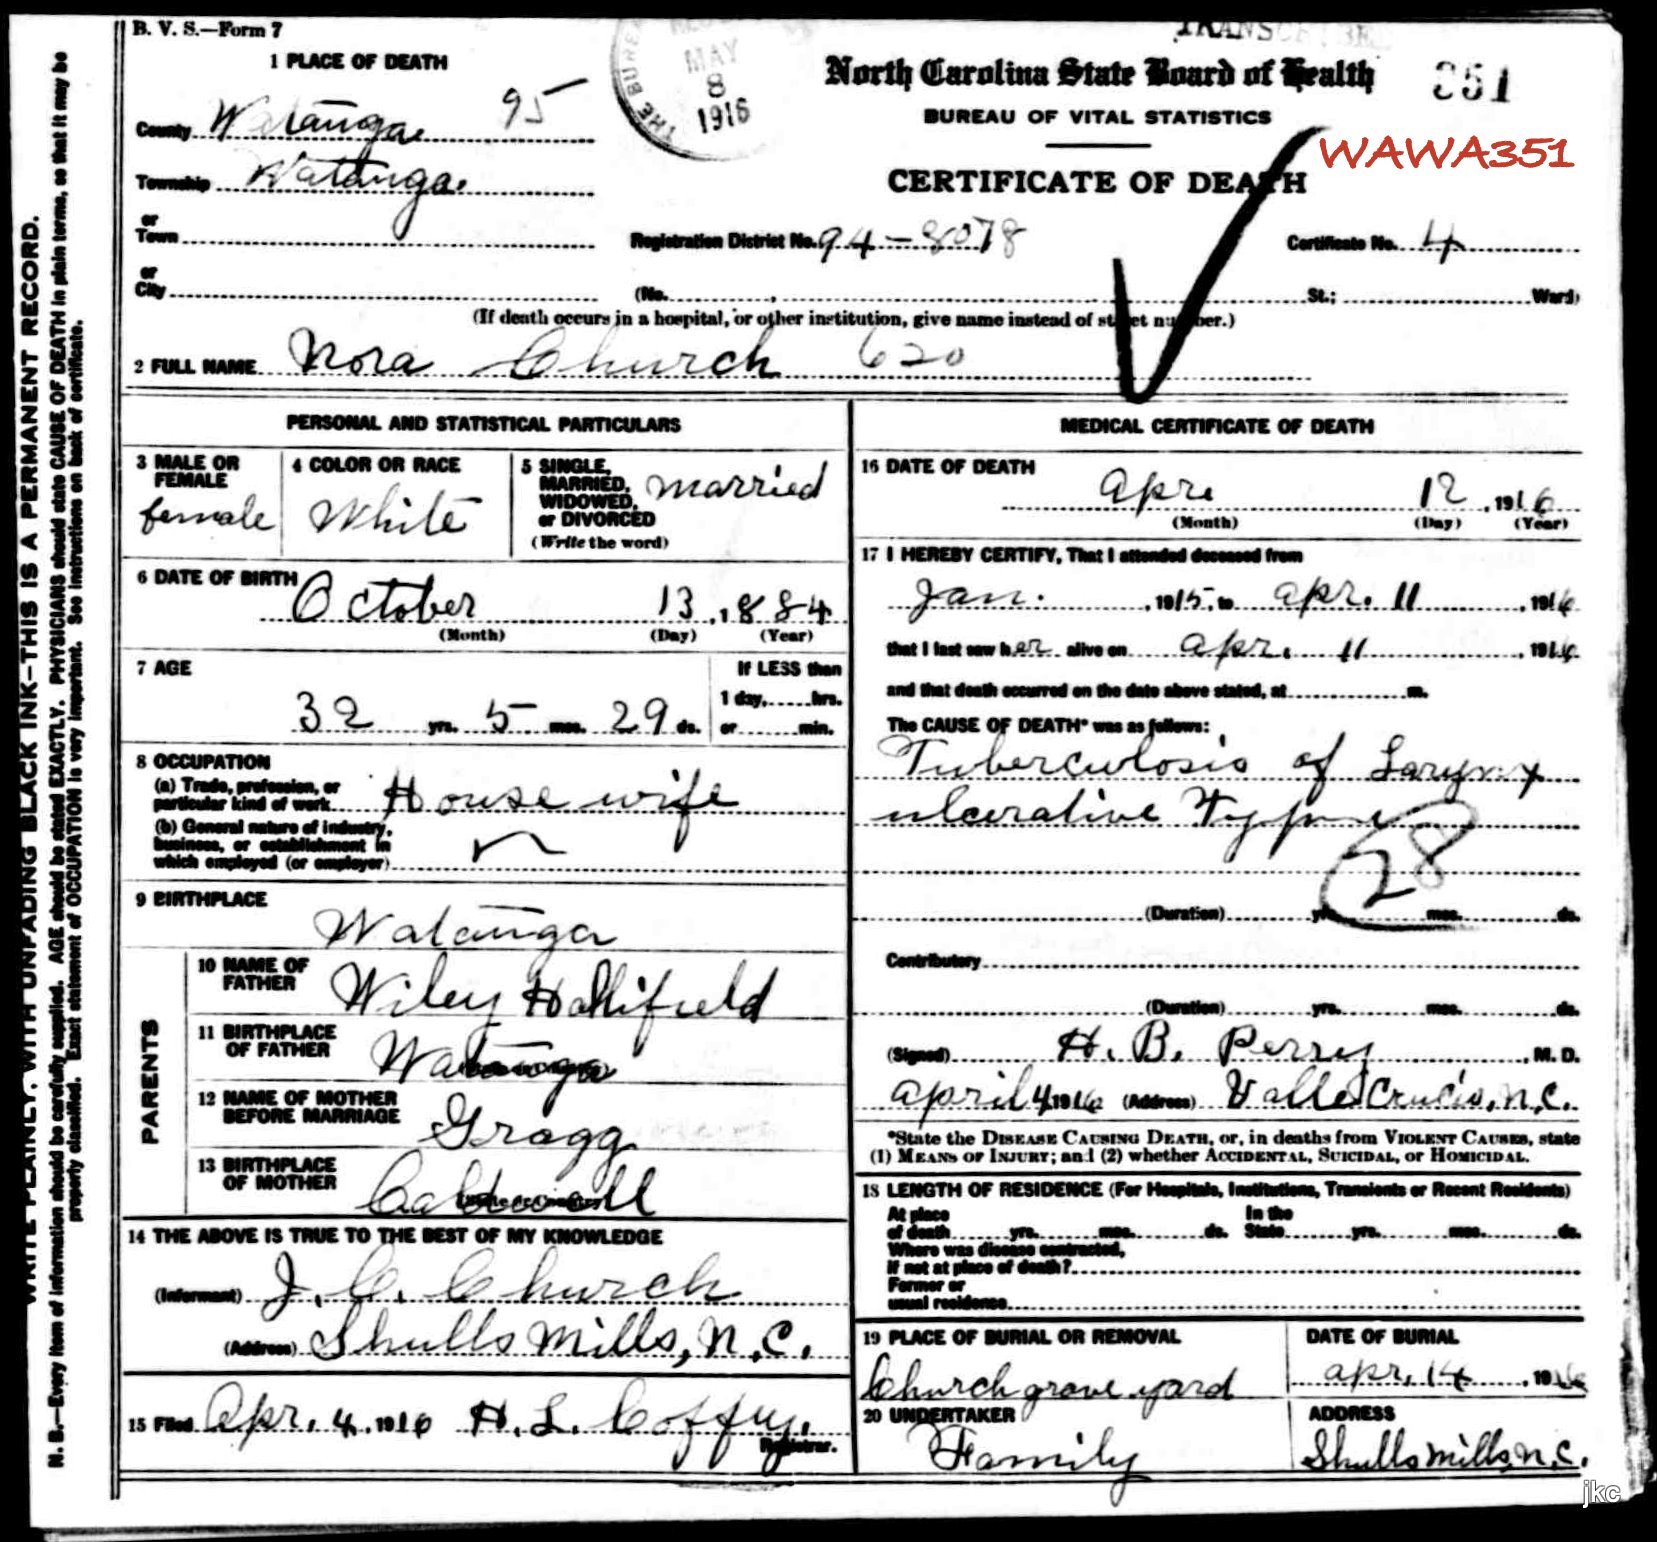 B. V. S.—Form 7
TRANSCRIBED
1 PLACE OF DEATH
MAY
8
1916
THE BUREAU
North Carolina State Board of Health 351
BUREAU OF VITAL STATISTICS
WAWA351
CERTIFICATE OF DEATH
County Watauga 95
Township Watauga
or
Town Registration District No. 94-8078 Certificate No. 4
or
City (No. , St.; Ward)
(If death occurs in a hospital, or other institution, give name instead of street number.)
2 FULL NAME Nora Church 620
PERSONAL AND STATISTICAL PARTICULARS
3 MALE OR FEMALE
female
4 COLOR OR RACE
White
5 SINGLE, MARRIED, WIDOWED, or DIVORCED married
(Write the word)
6 DATE OF BIRTH October 13, 1884
(Month) (Day) (Year)
7 AGE If LESS than
1 day, hrs.
32 yrs. 5 mos. 29 ds. or min.
8 OCCUPATION
(a) Trade, profession, or
particular kind of work House wife
(b) General nature of industry,
business, or establishment in
which employed (or employer)
9 BIRTHPLACE
Watauga
PARENTS
10 NAME OF FATHER Wiley Hollifield
11 BIRTHPLACE OF FATHER Watauga
12 NAME OF MOTHER BEFORE MARRIAGE Gragg
13 BIRTHPLACE OF MOTHER Caldwell
14 THE ABOVE IS TRUE TO THE BEST OF MY KNOWLEDGE
(Informant) J. C. Church
(Address) Shulls Mills, N.C.
15 Filed Apr. 4, 1916 H. L. Coffey.
Registrar.
MEDICAL CERTIFICATE OF DEATH
16 DATE OF DEATH
Apr. 12, 1916
(Month) (Day) (Year)
17 I HEREBY CERTIFY, That I attended deceased from
Jan. , 1915, to Apr. 11 , 1916
that I last saw her alive on Apr. 11 , 1916
and that death occurred on the date above stated, at m.
The CAUSE OF DEATH* was as follows:
Tuberculosis of Larynx
ulcerative Type
28
(Duration) yrs. mos. ds.
Contributory
(Duration) yrs. mos. ds.
(Signed) H. B. Perry , M. D.
April 4 1916 (Address) Valle Crucis, N.C.
*State the DISEASE CAUSING DEATH, or, in deaths from VIOLENT CAUSES, state
(1) MEANS OF INJURY; and (2) whether ACCIDENTAL, SUICIDAL, or HOMICIDAL.
18 LENGTH OF RESIDENCE (For Hospitals, Institutions, Transients or Recent Residents)
At place In the
of death yrs. mos. ds. State yrs. mos. ds.
Where was disease contracted,
If not at place of death?
Former or
usual residence
19 PLACE OF BURIAL OR REMOVAL
Church grave yard
DATE OF BURIAL
Apr. 14 , 1916
20 UNDERTAKER
Family
ADDRESS
Shulls Mills, N.C.
WRITE PLAINLY, WITH UNFADING BLACK INK—THIS IS A PERMANENT RECORD.
N. B.—Every item of information should be carefully supplied. AGE should be stated EXACTLY. PHYSICIANS should state CAUSE OF DEATH in plain terms, so that it may be
properly classified. Exact statement of OCCUPATION is very important. See instructions on back of certificate.
jkc